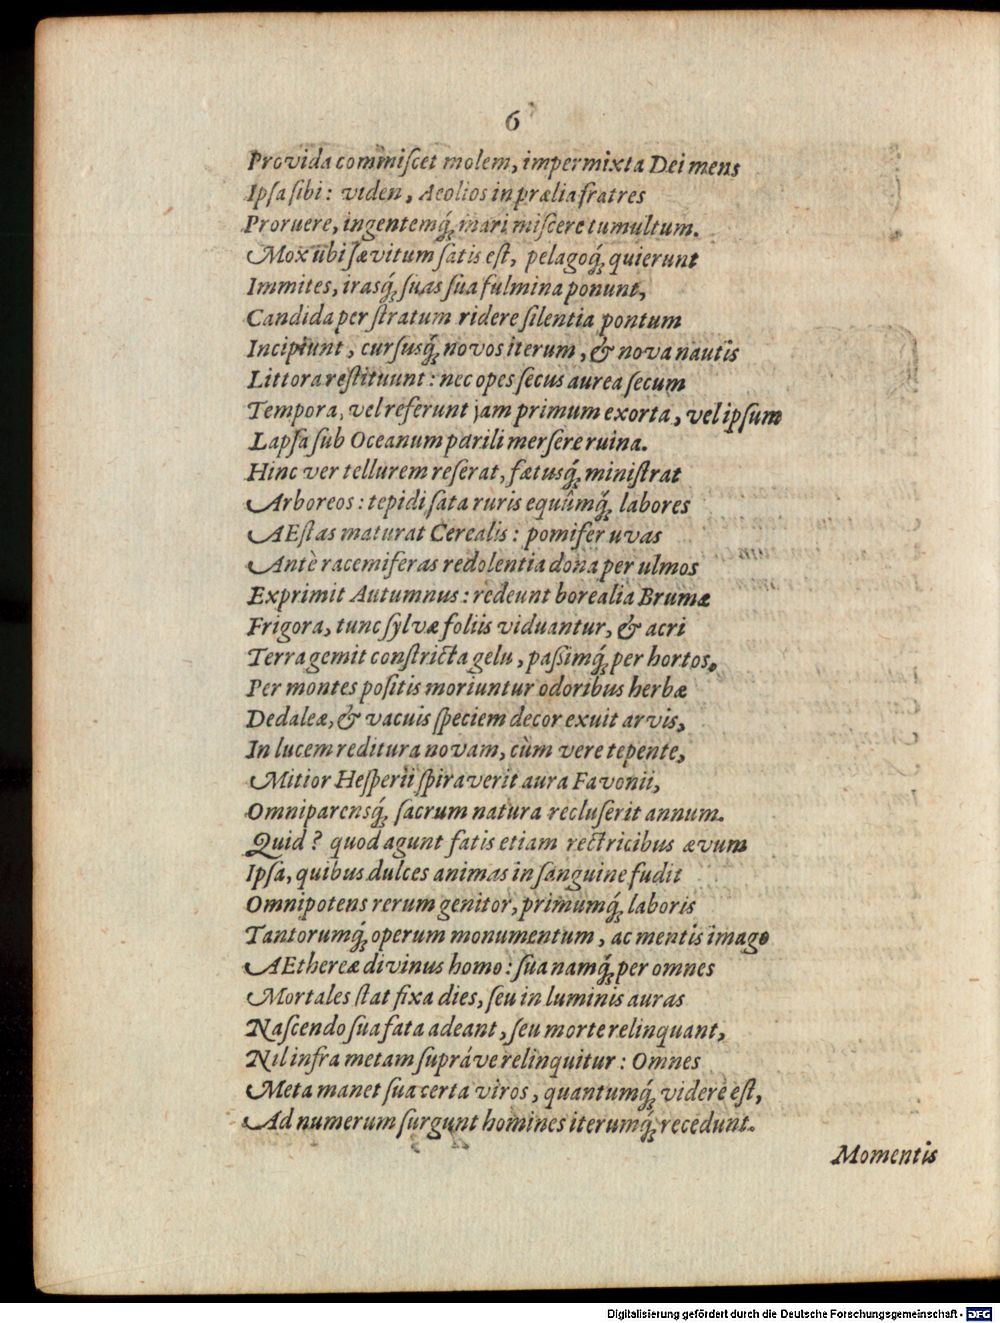 6
Provida commiſcet molem, impermixta Dei mens
Ipſa ſibi: viden, Aeolios in prælia fratres
Proruere, ingentemq́; mari miſcere tumultum.
Mox ubi ſævitum ſatis eſt, pelagoq́; quierunt
Immites, irasq́; ſuas ſua fulmina ponunt,
Candida per ſtratum ridere ſilentia pontum
Incipiunt, curſusq́; novos iterum, & nova nautis
Littora reſtituunt: nec opes ſecus aurea ſecum
Tempora, vel referunt jam primum exorta, vel ipſum
Lapſa ſub Oceanum parili merſere ruina.
Hinc ver tellurem reſerat, fætusq́; miniſtrat
Arboreos: tepidi ſata ruris equûmq́; labores
AEſtas maturat Cerealis: pomifer uvas
Antè racemiferas redolentia dona per ulmos
Exprimit Autumnus: redeunt borealia Brumæ
Frigora, tunc ſylvæ foliis viduantur, & acri
Terra gemit conſtricta gelu, paſſimq́; per hortos,
Per montes poſitis moriuntur odoribus herbæ
Dedaleæ, & vacuis ſpeciem decor exuit arvis,
In lucem reditura novam, cùm vere tepente,
Mitior Heſperii ſpiraverit aura Favonii,
Omniparensq́; ſacrum natura recluſerit annum.
Quid? quod agunt fatis etiam rectricibus ævum
Ipſa, quibus dulces animas in ſanguine fudit
Omnipotens rerum genitor, primumq́; laboris
Tantorumq́; operum monumentum, ac mentis imago
AEthereæ divinus homo: ſua namq́; per omnes
Mortales ſtat fixa dies, ſeu in luminis auras
Naſcendo ſua fata adeant, ſeu morte relinquant,
Nil infra metam ſupráve relinquitur: Omnes
Meta manet ſua certa viros, quantumq́; videre eſt,
Ad numerum ſurgunt homines iterumq́; recedunt.
Momentis
Digitalisierung gefördert durch die Deutsche Forschungsgemeinschaft - DFG